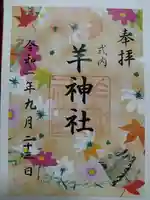 奉拝
式内
羊神社
令和二年九月二十二日